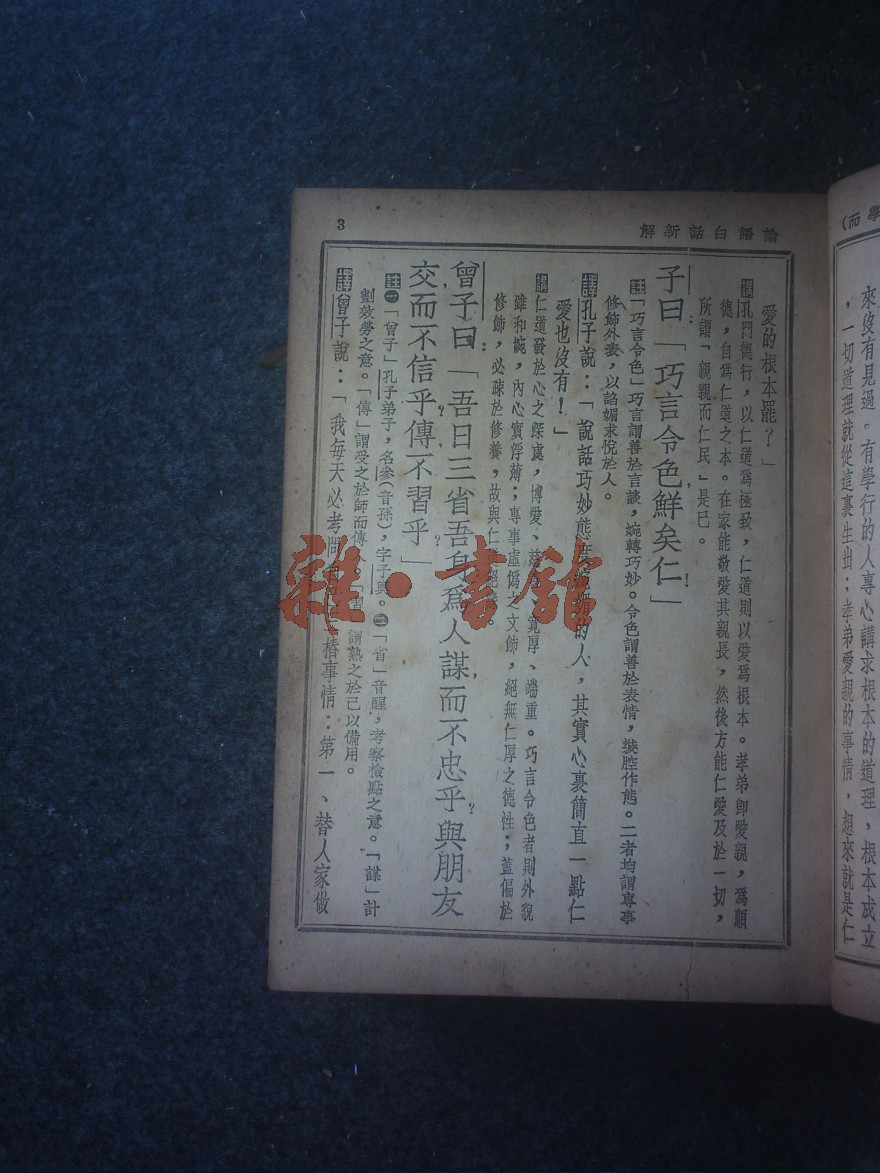 學而）
來沒有見過。有學行的人專心講求根本的道理，根本成立
，一切道理就從這裏生出；孝弟愛親的事情，想來就是仁
論語白話新解
3
愛的根本罷？」
講孔門德行，以仁道爲極致，仁道則以愛爲根本。孝弟卽愛親，爲順
德，自爲仁道之本。在家能敬愛其親長，然後方能仁愛及於一切，
所謂「親親而仁民」是已。
子曰「巧言令色鮮矣仁！」
註「巧言令色」巧言謂善於言談，婉轉巧妙。令色謂善於表情，裝腔作態。二者均謂專事
修飾外表，以諂媚求悅於人。
譯孔子說：「說話巧妙態度的人，其實心裏簡直一點仁
愛也沒有！」
講仁道發於心之深處，博愛、寬厚、端重。巧言令色者則外貌
雖和婉，內心實浮薄；專事虛僞之文飾，絕無仁厚之德性；蓋偏於
修飾，必疎於修養，故與仁絕。
曾子曰：「吾日三省吾身，爲人謀而不忠乎？與朋友
交，而不信乎？傳，不習乎？」
註㊀「曾子」孔子弟子，名參（音孫），字子輿。㊁「省」音醒，考察檢點之意。「謀」計
劃效勞之意。「傳」謂受之於師而傳人。「習」謂熟之於己以備用。
譯曾子說：「我每天必考問椿事情：第一、替人家做
雜·書館